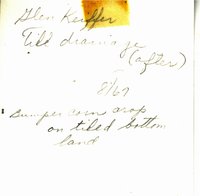 Glen Keiffer
Tile drainage
(after)
8/67
Bumper corn crop
on tiled bottom
land